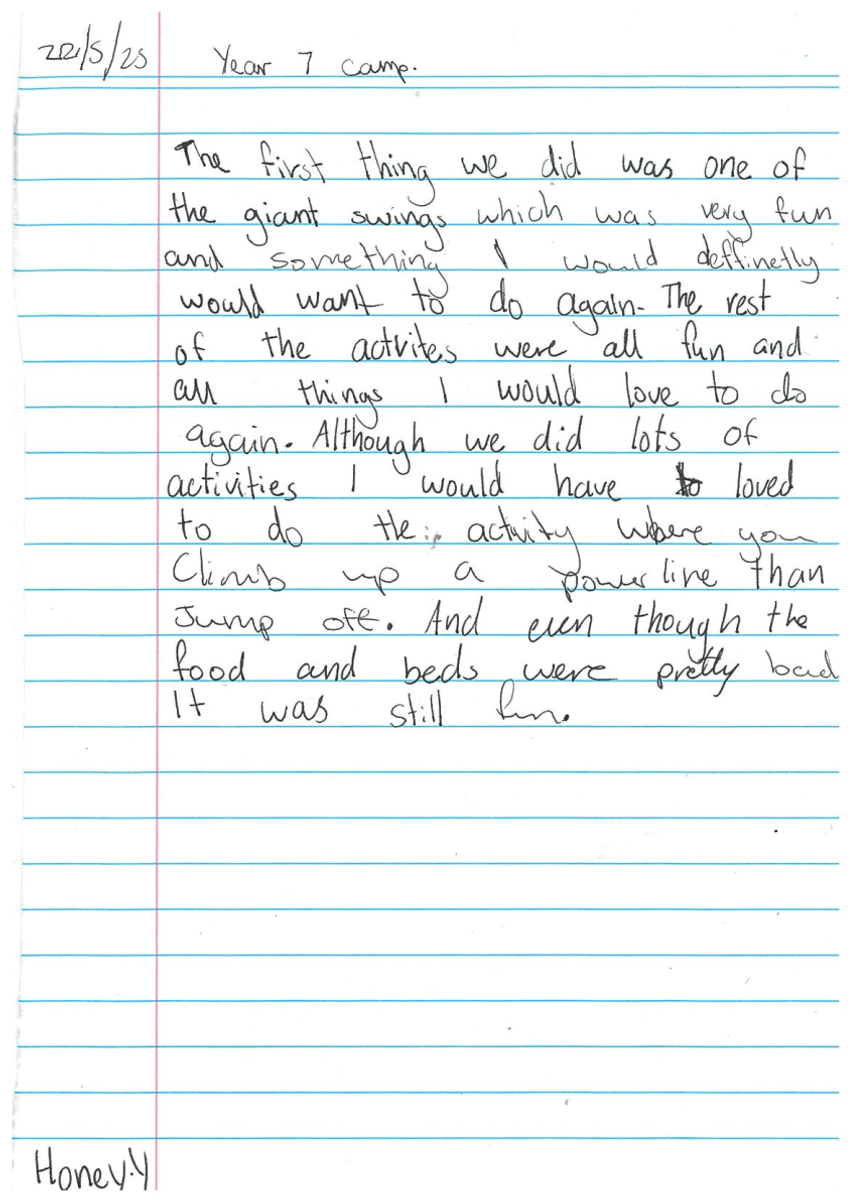 22/5/25 Year 7 camp.
The first thing we did was one of
the giant swings which was very fun
and something I would deffinetly
would want to do again. The rest
of the actvites were all fun and
all things I would love to do
again. Although we did lots of
activities I would have to loved
to do the activity where you
Climb up a power line than
Jump off. And even though the
food and beds were pretty bad
It was still fun.
Honey.Y